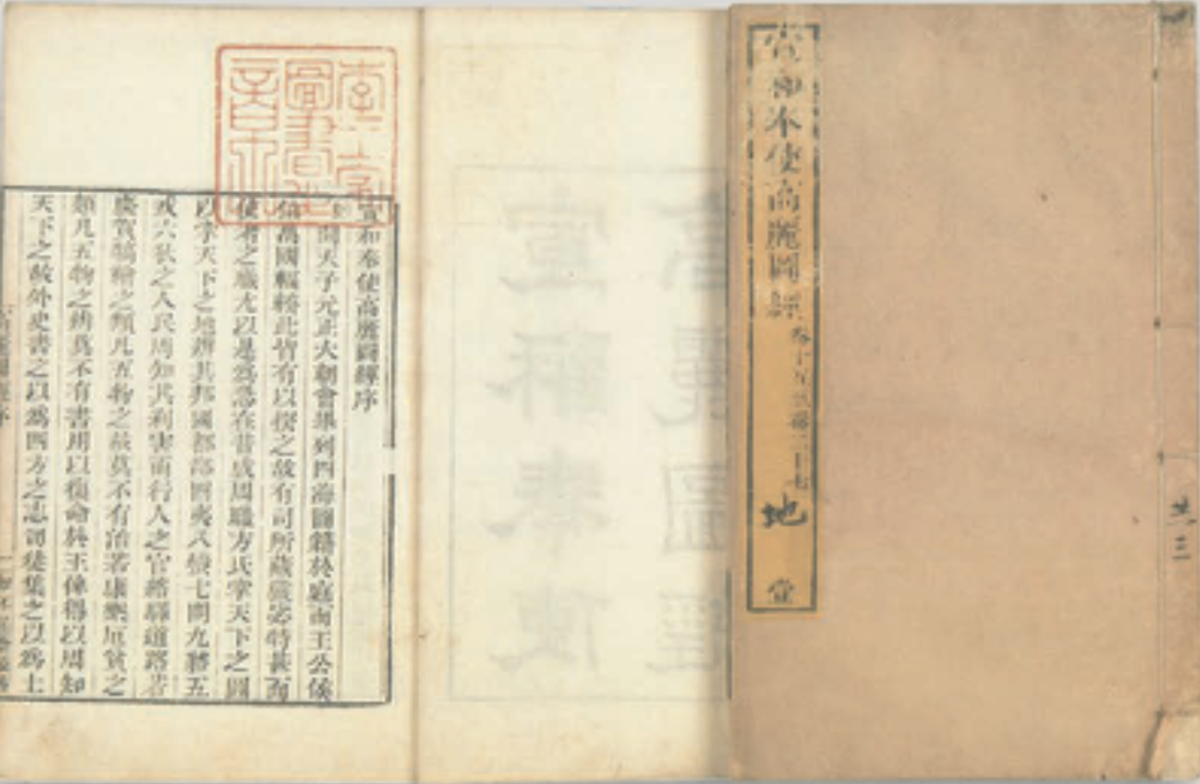 宣和奉使高麗圖經
地
堂
宣和奉使高麗圖經
宣和奉使高麗圖經序
聞天子元正大朝會畢列四海圖籍於庭而王公侯
萬國輻輳此皆有以揆之故有司所藏嚴毖特甚而
使者之職尤以是爲急在昔成周職方氏掌天下之圖
以掌天下之地辨其邦國都鄙四夷八蠻七閩九貉五
戎六狄之人民周知其利害而行人之官絡驛道路若
慶賀犒禬之類凡五物之故莫不有治若康樂厄貧之
類凡五物之辨莫不有書用以復命於王俾得以周知
天下之故外史書之以爲四方之志司徒集之以爲土